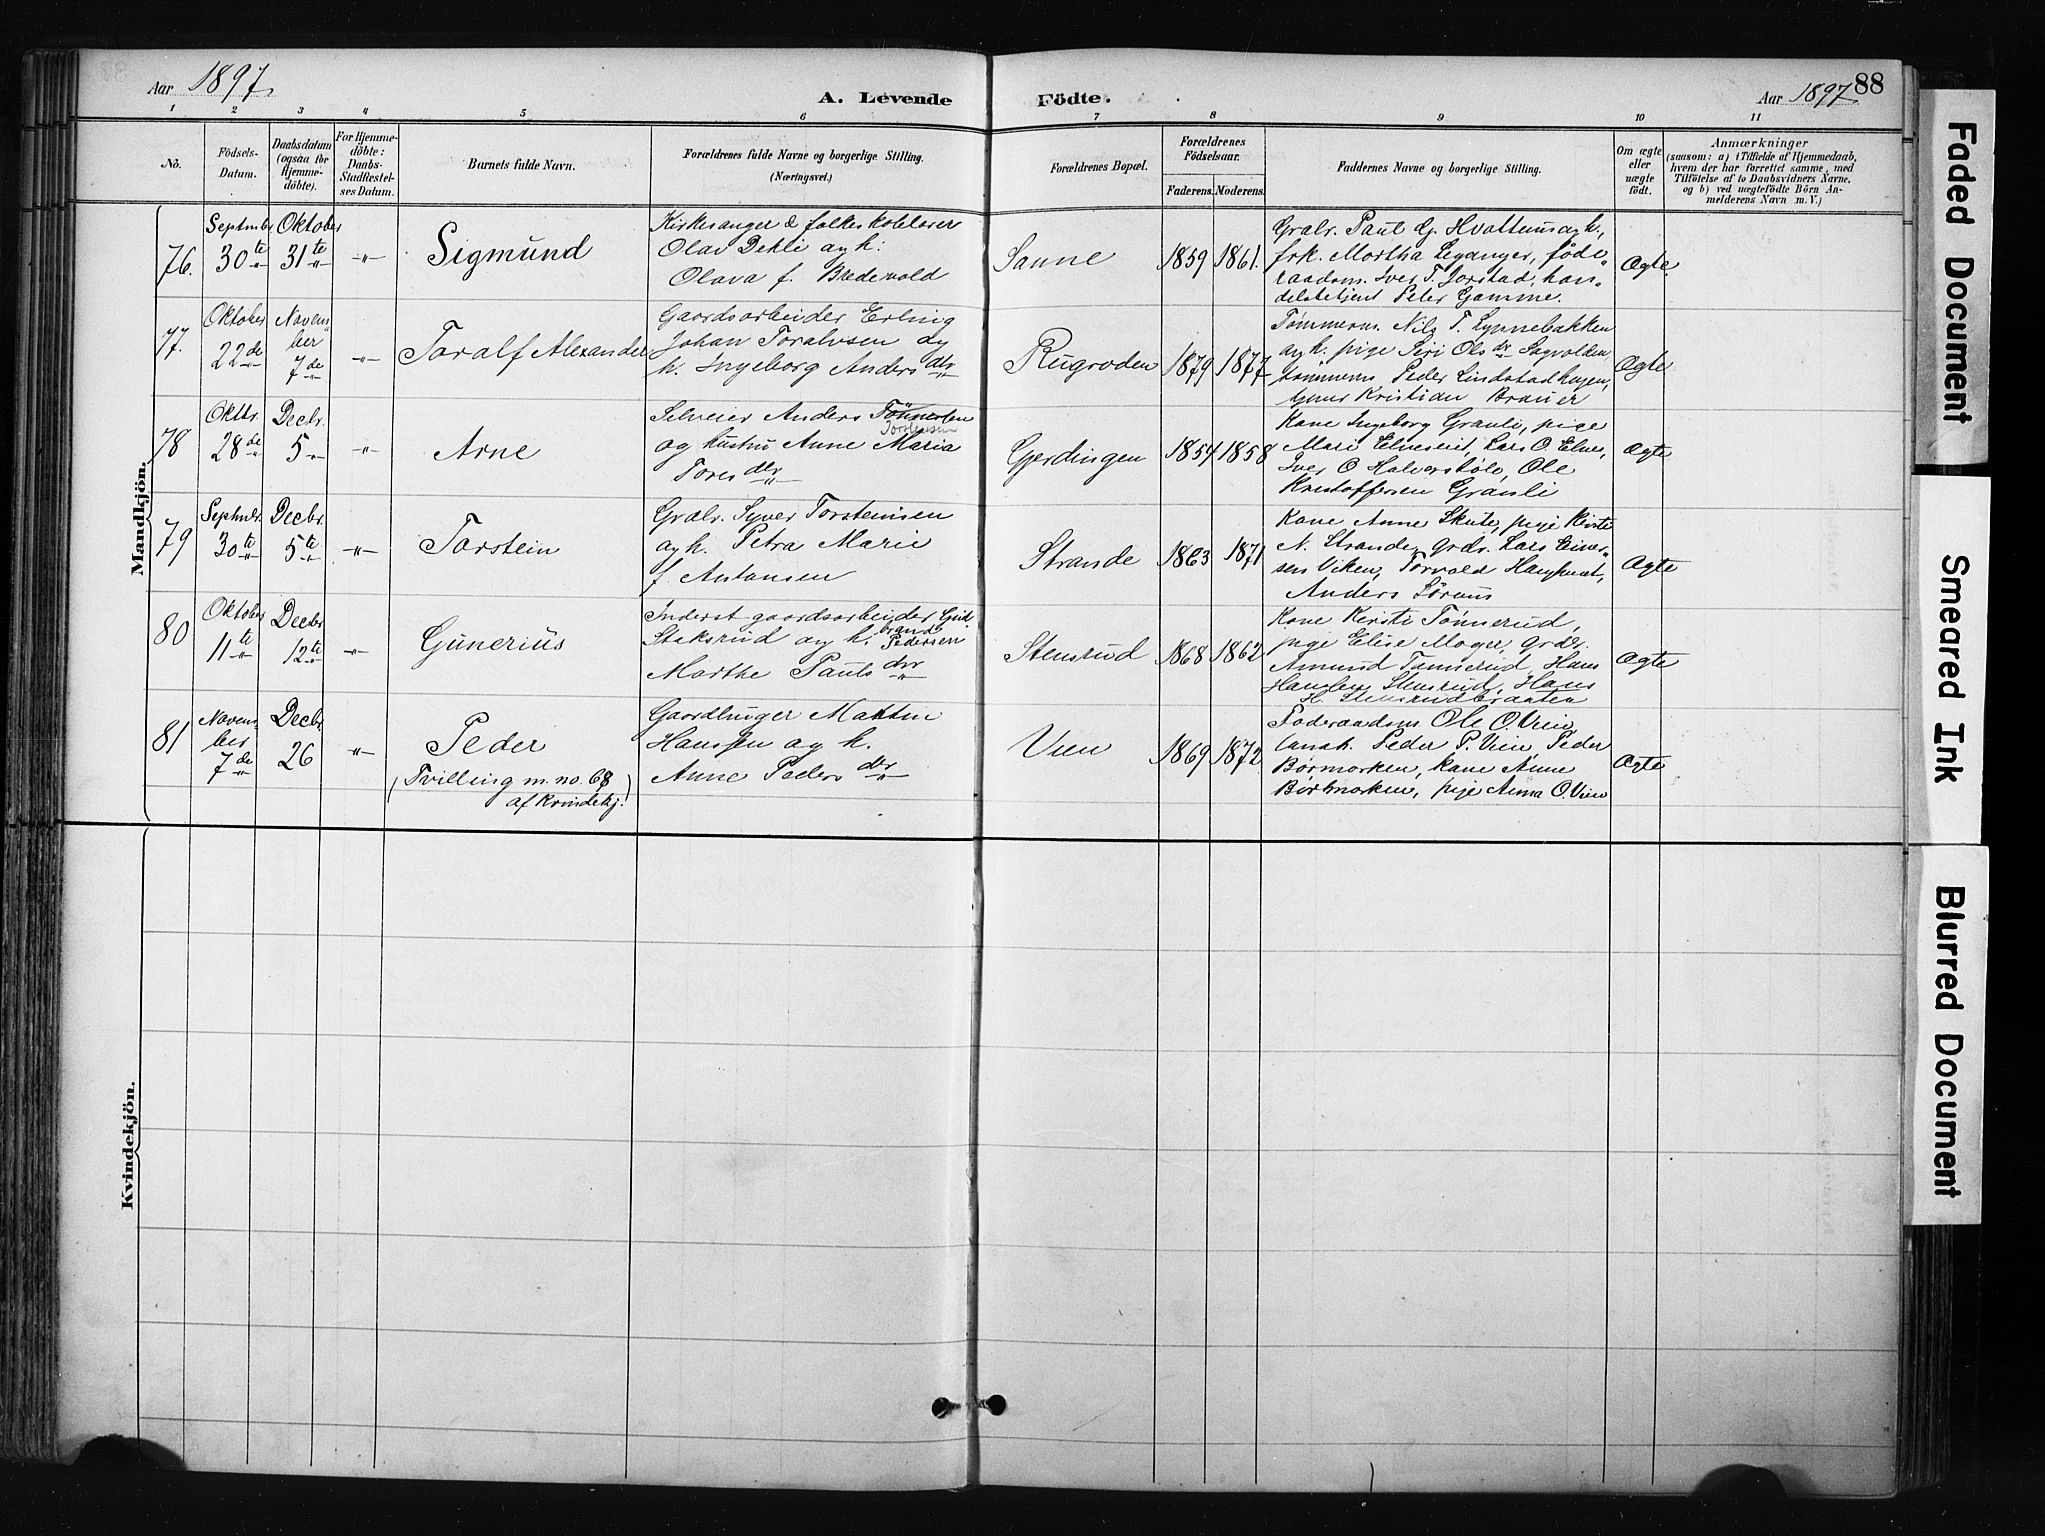 Aar 1897.
A. Levende Födte.
Aar 1897.
88
1 2 3 4 5 6 7 8 9 10 11
No.
Födsels-
Datum.
Daabsdatum
(ogsaa for
Hjemme-
döbte).
For Hjemme-
döbte:
Daabs-
Stadfæstel-
ses Datum.
Barnets fulde Navn.
Forældrenes fulde Navne og borgerlige Stilling.
(Næringsvei.)
Forældrenes Bopæl.
Forældrenes
Födselsaar.
Faderens. Moderens.
Faddernes Navne og borgerlige Stilling.
Om ægte
eller
uægte
födt.
Anmærkninger
(saasom: a) i Tilfælde af Hjemmedaab,
hvem der har forrettet samme, med
Tilföielse af to Daabsvidners Navne,
og b) ved uægtefödte Börn An-
melderens Navn m. V.)
Mandkjön.
76.
September
30te
Oktober
31te
Sigmund
Kirkesanger & folkeskolelærer
Olav Dekli og h:
Olava f. Bredevold
Sanne
1859 1861.
Grdr. Paul G. Hvattum og h.,
frk. Martha Leganger, föde-
raadsm. Iver T. Jorstad, han-
delsbetjent Peter Gamme.
Ægte
77.
Oktober
22de
Novem-
ber
7de
Toralf Alexander
Gaardsarbeider Erling
Johan Toralvsen og
h. Ingeborg Andersdtr
Rugroden
1879 1877
Tømmerm. Nils T. Lynnebakken
og h. pige Siri Olsdr Sagvolden
tømmerm Peder Lindstadhagen,
Kristian Brauer
Ægte
78
Oktbr.
28de
Decbr.
5
Arne
Selveier Anders
Torstensen
og hustru Anne Maria
Toresdtr
Gjerdingen
1854 1858
Kone Ingeborg Granli, pige
Mari Elveseiet, Lars O. Elves,
Iver O Halvorsböle, Ole
Kristoffersen Granli
Ægte
79
Septmbr.
30te
Decbr.
5te
Torstein
Grdr. Syver Torsteinsen
og h. Petra Marie
f. Antonsen
Strande
1863 1871
Kone Anne Skute, pige Kirsti
N. Strande, grdr. Lars Einer-
sen Viken, Torvald
Anders Sørum
Ægte
80
Oktober
11te
Decbr
12te
Gunerius
Inderst gaardsarbeider Gud-
brand
Steksrud og h. Pedersen
Marthe Paulsdtr
Stensrud
1868 1862
Kone Kirsti Tønnerud,
pige Elise Moger, grdr.
Amund Tønnerud, Hans
Hansen Stensrud, Hans
H. Stensrudbraaten
Ægte
81
Novem-
ber
7de
Decbr.
26
Peder
(Tvilling m. no. 68
af kvindekj.)
Gaardbruger Martin
Hansen og h.
Anne Pedersdtr
Vien
1869 1872
Föderaadsm Ole O. Vien,
Peder P. Vien, Peder
Børmarken, kone Anne
Børtmarken, pige Anna O. Vien
Ægte
Kvindekjön.
Faded Document
Smeared Ink
Blurred Document